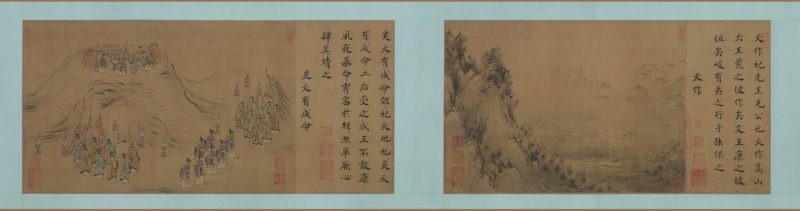 天作祀先王先公也天作高山
大王荒之彼作矣文王康之彼
徂矣岐有夷之行子孫保之
天作
昊天有成命郊祀天地也昊天
有成命二后受之成王不敢康
夙夜基命宥密於緝熙單厥心
肆其靖之
昊天有成命